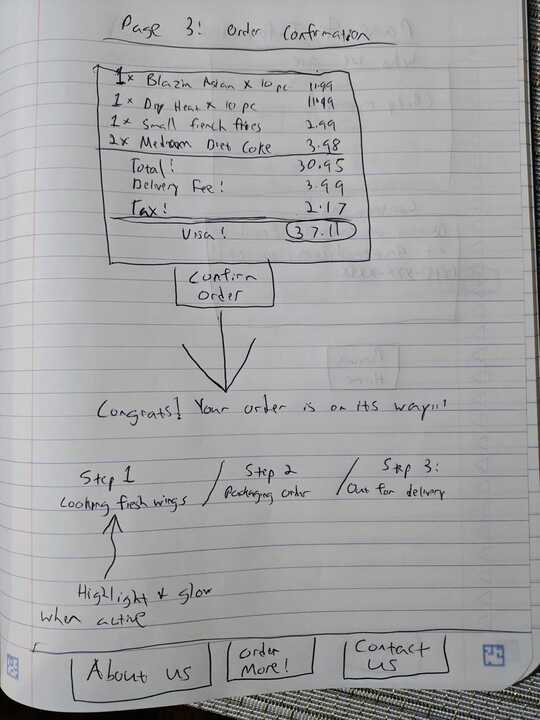 Page 3: Order Confirmation
1x Blazin Asian x 10 pc 11.99
1x Dry Heat x 10 pc 11.99
1x Small french fries 2.99
2x Medium Diet Coke 3.98
Total: 30.95
Delivery Fee: 3.99
Tax: 2.17
Visa: 37.11
Confirm
Order
Congrats! Your order is on its way!!!
Step 1 / Step 2 / Step 3:
Cooking fresh wings / Packaging order / Out for delivery
Highlight & glow
when active
About us
Order
More!
Contact
us